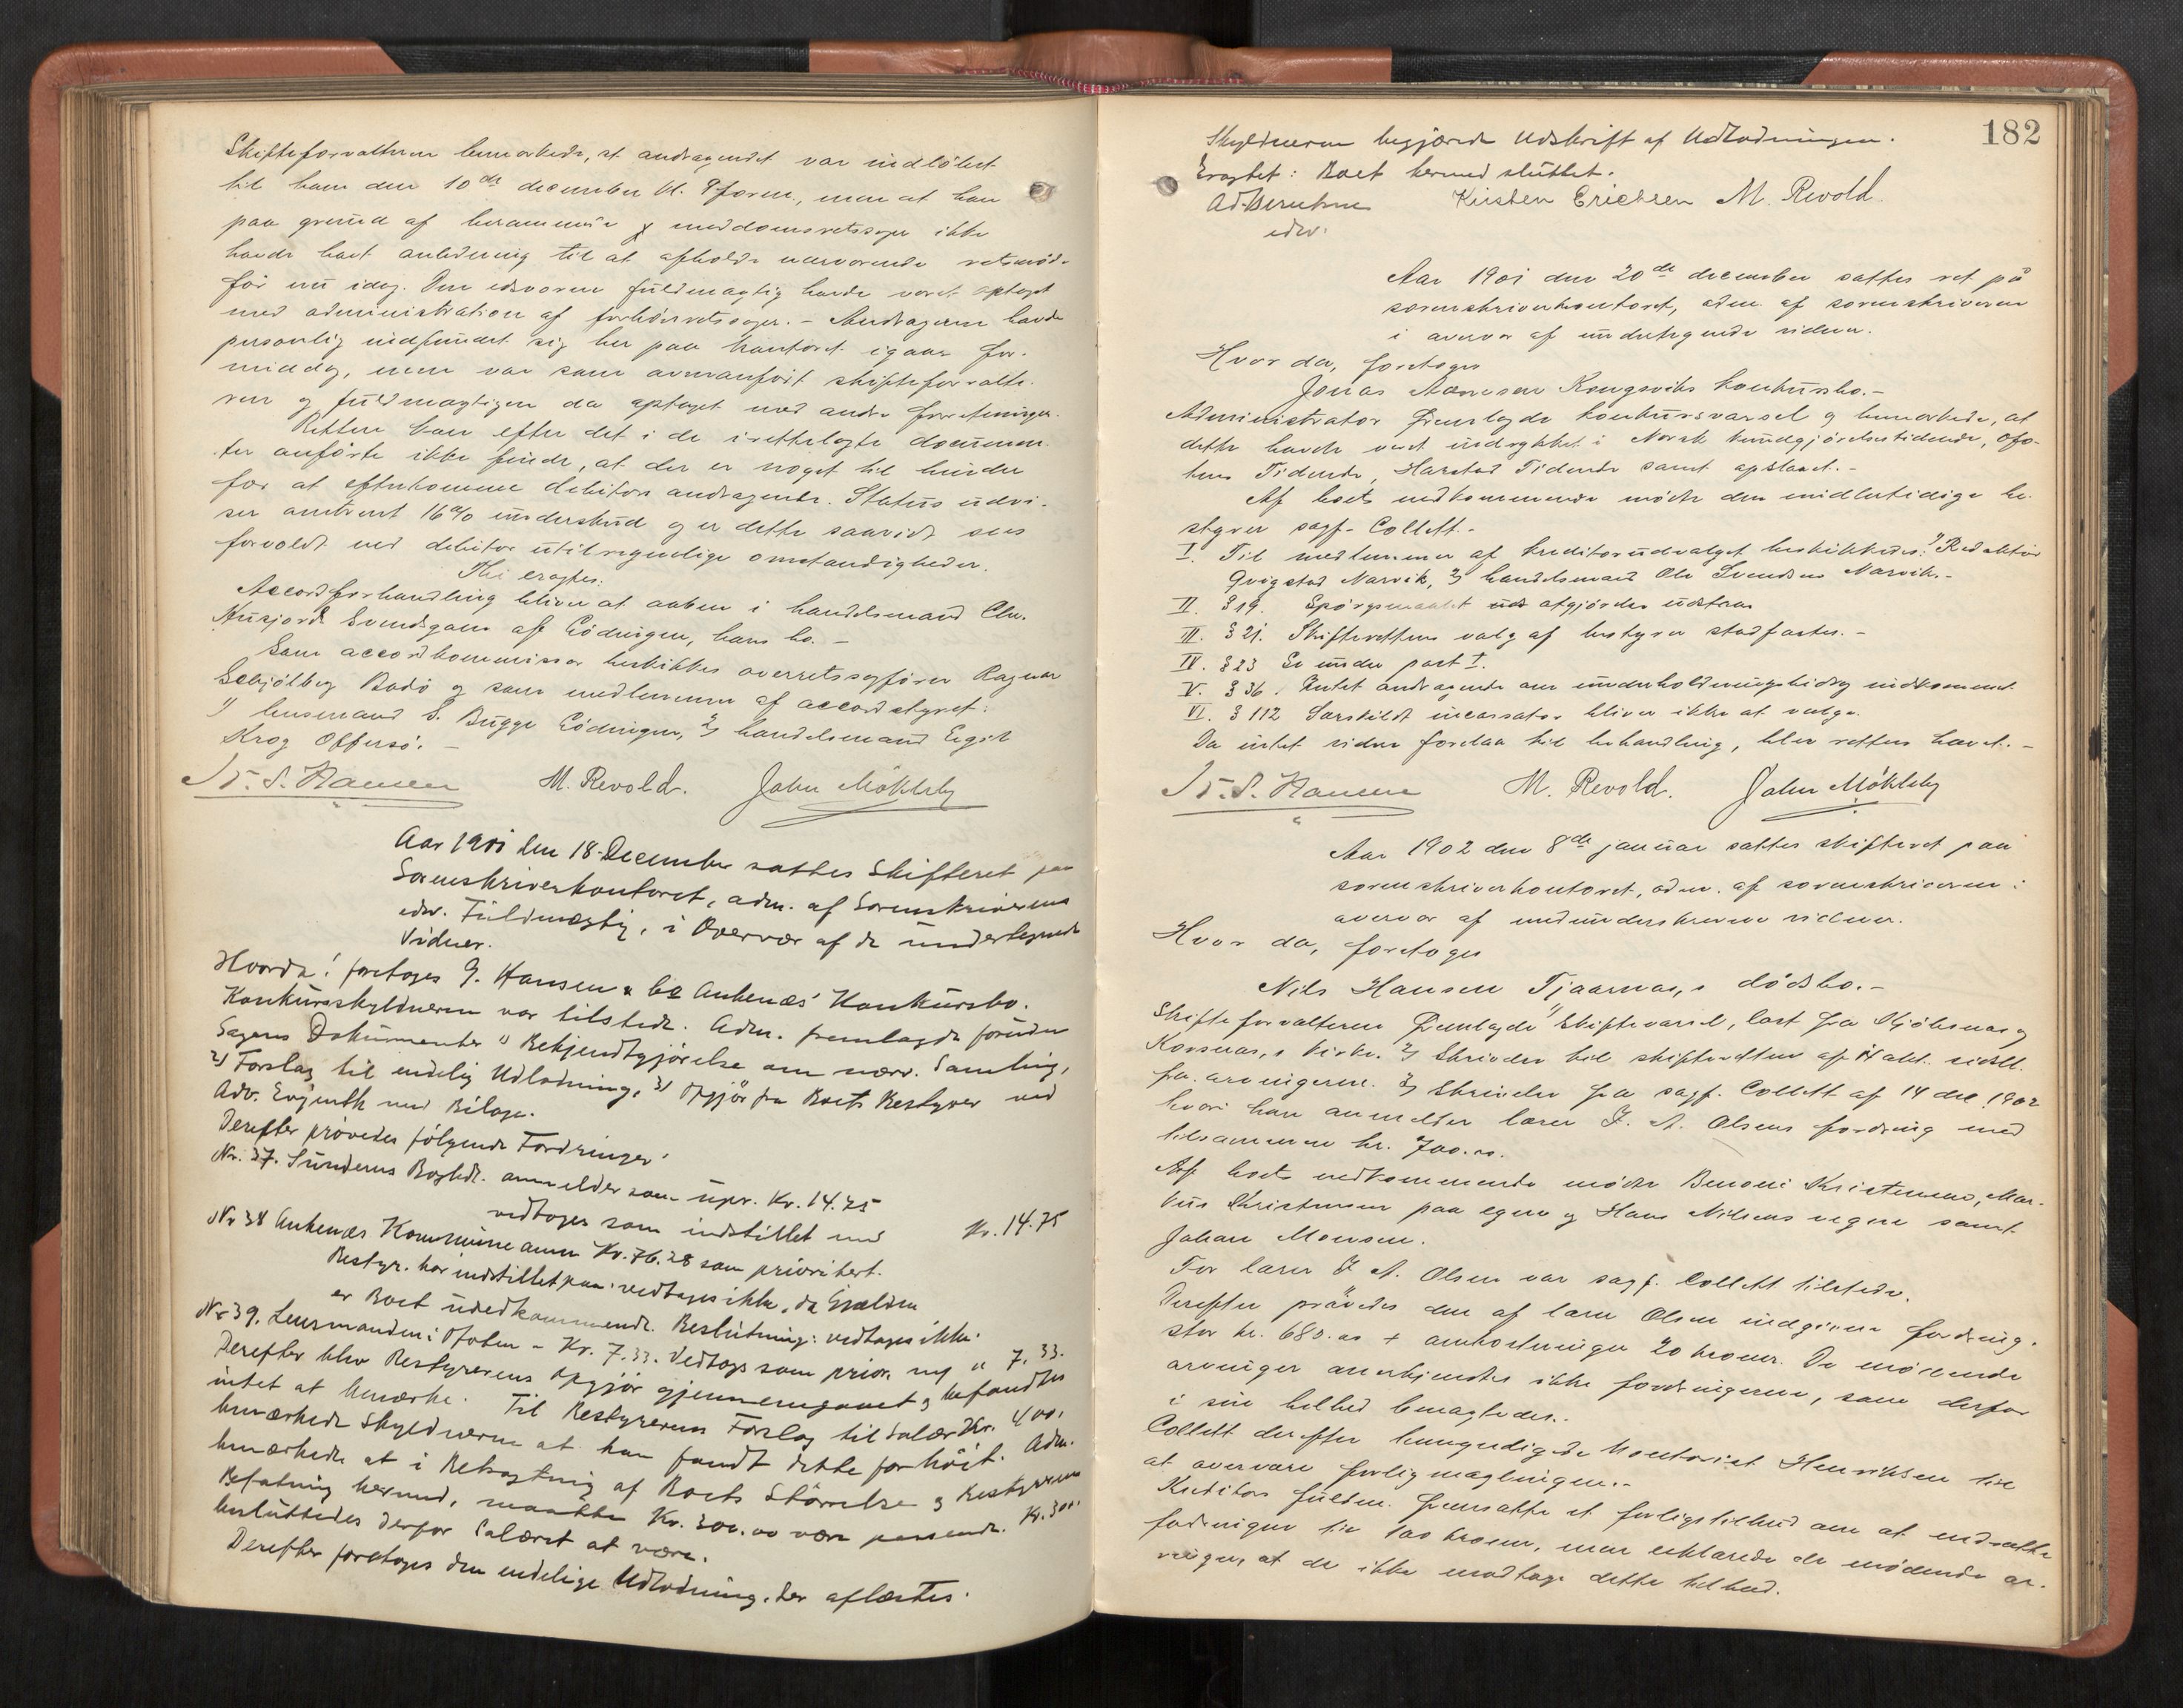 Skifteforvalteren bemærkede, at andragendet var indløbet
til ham den 10de december kl. 9 form., men at han
paa grund af berammede meddomsretssager ikke
havde havt anledning til at afholde nærværende retsmøde
før nu idag. Den edsvorne fuldmægtig havde været optaget
med administration af forhørsretssager. - Andrageren havde
personlig indfundet sig her paa kontoret igaar for-
middag, men var som ovenanført skifteforvalte-
ren og fuldmægtigen da optaget med andre forretninger.
Retten kan efter det i de irettelagte documen-
ter anførte ikke finde, at der er noget til hinder
for at efterkomme debitors andragende. Status udvi-
ser omtrent 16% underskud og er dette saavidt sees
forvoldt ved debitor utilregnelige omstændigheder.
Thi eragtes:
Accordforhandling bliver at aabne i handelsmand Chr.
Husjord Svendsgam af Lödingen, hans bo. -
Som accordkommissær beskikkes overretssagfører Ragnar
Schjölberg Bodö og som medlemmer af accordstyret:
1) lensmand S. Bugge Lödingen, 2) handelsmand Egil
Krog Offersö. -
M. Revold. John Mökleby
Aar 1901 den 18. December sattes Skifteret paa
Sorenskriverkontoret, adm. af Sorenskriverens
edsv. Fuldmægtig, i Overvær af de undertegnede
Vidner.
Hvorda! foretoges G. Hansen & Co Ankenæs' Konkursbo.
Konkursskyldneren var tilstede. Adm. fremlagde foruden
Sagens Dokumenter 1) Bekjendtgjørelse om nærv. Samling,
2) Forslag til endelig Udlodning, 3) Opgjør fra Boets Bestyrer ved
Adv. Evjenth med Bilage.
Derefter prøvedes følgende Fordringer:
Nr. 37. Sunderns Boghdl. anmelder som upr. Kr. 14.75
vedtoges som indstillet med Kr. 14.75
Nr 38 Ankenæs Kommune anm Kr. 76.28 som prioritert.
Bestyr. har indstillet paa: vedtages ikke, da Gjælden
er Boet uvedkommende. Beslutning: vedtages ikke.
Nr 39. Lensmanden i Ofoten - Kr. 7.33. Vedtogs som prior. m/ " 7.33.
Derefter blev Bestyrerens Opgjør gjennemgaaet og befandtes
intet at bemærke. Til Bestyrerens Forslag til Salær Kr. 400,
bemærkede Skyldneren at han fandt dette for høit. Adm.
bemærkede at i Betragtning af Boets Størrelse og Bestyrerens
Befatning hermed, maatte Kr. 300.00 være passende.
besluttedes derfor Salæret at være. Kr. 300
Derefter foretoges den endelige Udlodning, der aflæstes.
182
Skyldneren begjærede Udskrift af Udlodningen.
Eragtet: Boet hermed sluttet.
Kirsten Erichsen M. Revold.
edsv.
Aar 1901 den 20de december sattes ret på
sorenskriverkontoret, adm. af sorenskriveren
i overvær af undertegnede vidner.
Hvor da, foretoges
Jonas Kongsviks konkursbo. -
Administrator fremlagde konkursvarsel og bemærkede, at
dette havde været indrykket i Norsk kundgjørelsestidende, Ofo-
tens Tidende, Harstad Tidende samt opslaaet. -
Af boets vedkommende mødte den midlertidige be-
styrer sagf. Collett. -
I. Til medlemmer af kreditorudvalget beskikkedes: 1) Redaktør
Qvigstad Narvik, 2) handelsmand Ole Svendsen Narvik. -
II. § 19. Spørgsmaalet afgjørdes udsttes
III. § 21. Skifterettens valg af bestyrer stadfæstes. -
IV. § 23 Se under post I.
V. § 36. Intet andragende om underholdningsbidrag indkommet.
VI. § 112 Særskildt incassator bliver ikke at vælge.
Da intet videre forelaa til behandling, blev retten hævet. -
M. Revold. John Mökleby
Aar 1902 den 8de januar sattes skifteret paa
sorenskriverkontoret, adm. af sorenskriveren i
overvær af medunderskrevne vidner.
Hvor da, foretoges
Nils Hansen Tjaarnæs,s dödsbo. -
Skifteforvalteren fremlagde 1) Skiftevarsel, læst fra og
Korsnæs,s kirke. 2) Skrivelse til skifteretten af
fra arvingerne. 3) Skrivelse fra sagf. Collett af 14 dec. 1902
hvori han anmelder lærer J. A. Olsens fordring med
tilsammen kr. 700.00.
Af boets vedkommende mødte Benoni Kristensen, Mar-
kus Christensen paa egne og Hans Nilsens vegne samt
Johan Monsen.
For lærer J. A. Olsen var sagf. Collett tilstede.
Derefter prøvedes den af lærer Olsen indgivne fordring,
stor kr. 680.00 + omkostninger 20 kroner. De mødende
arvinger anerkjendte ikke fordringerne, som derfor
i sin helhed benægtedes.
Collett derefter bemyndigede kontorist Henriksen til
at overvære forligmæglingen. -
Kreditors fuldm. fremsatte et forligstilbud om at nedsætte
fordringen til 100 kroner, men erklærede de mødende ar-
vinger, at de ikke modtage dette tilbud.